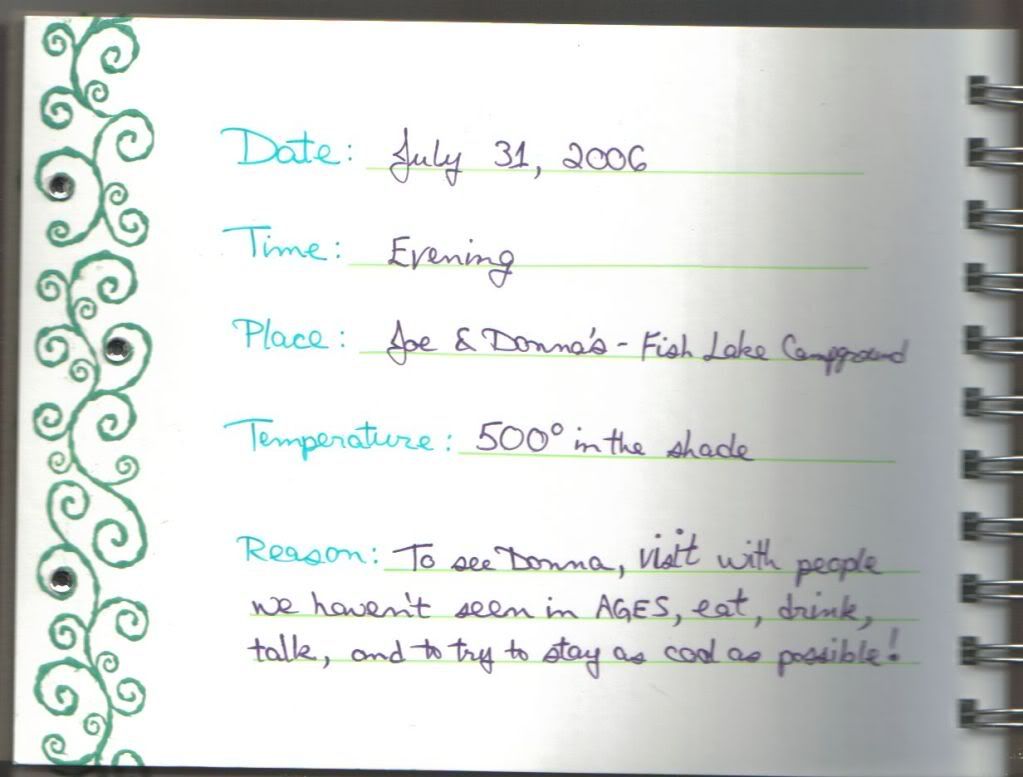 Date: July 31, 2006
Time: Evening
Place: Joe & Donna's - Fish Lake Campground
Temperature: 500° in the shade
Reason: To see Donna, visit with people
we haven't seen in AGES, eat, drink,
talk, and to try to stay as cool as possible!